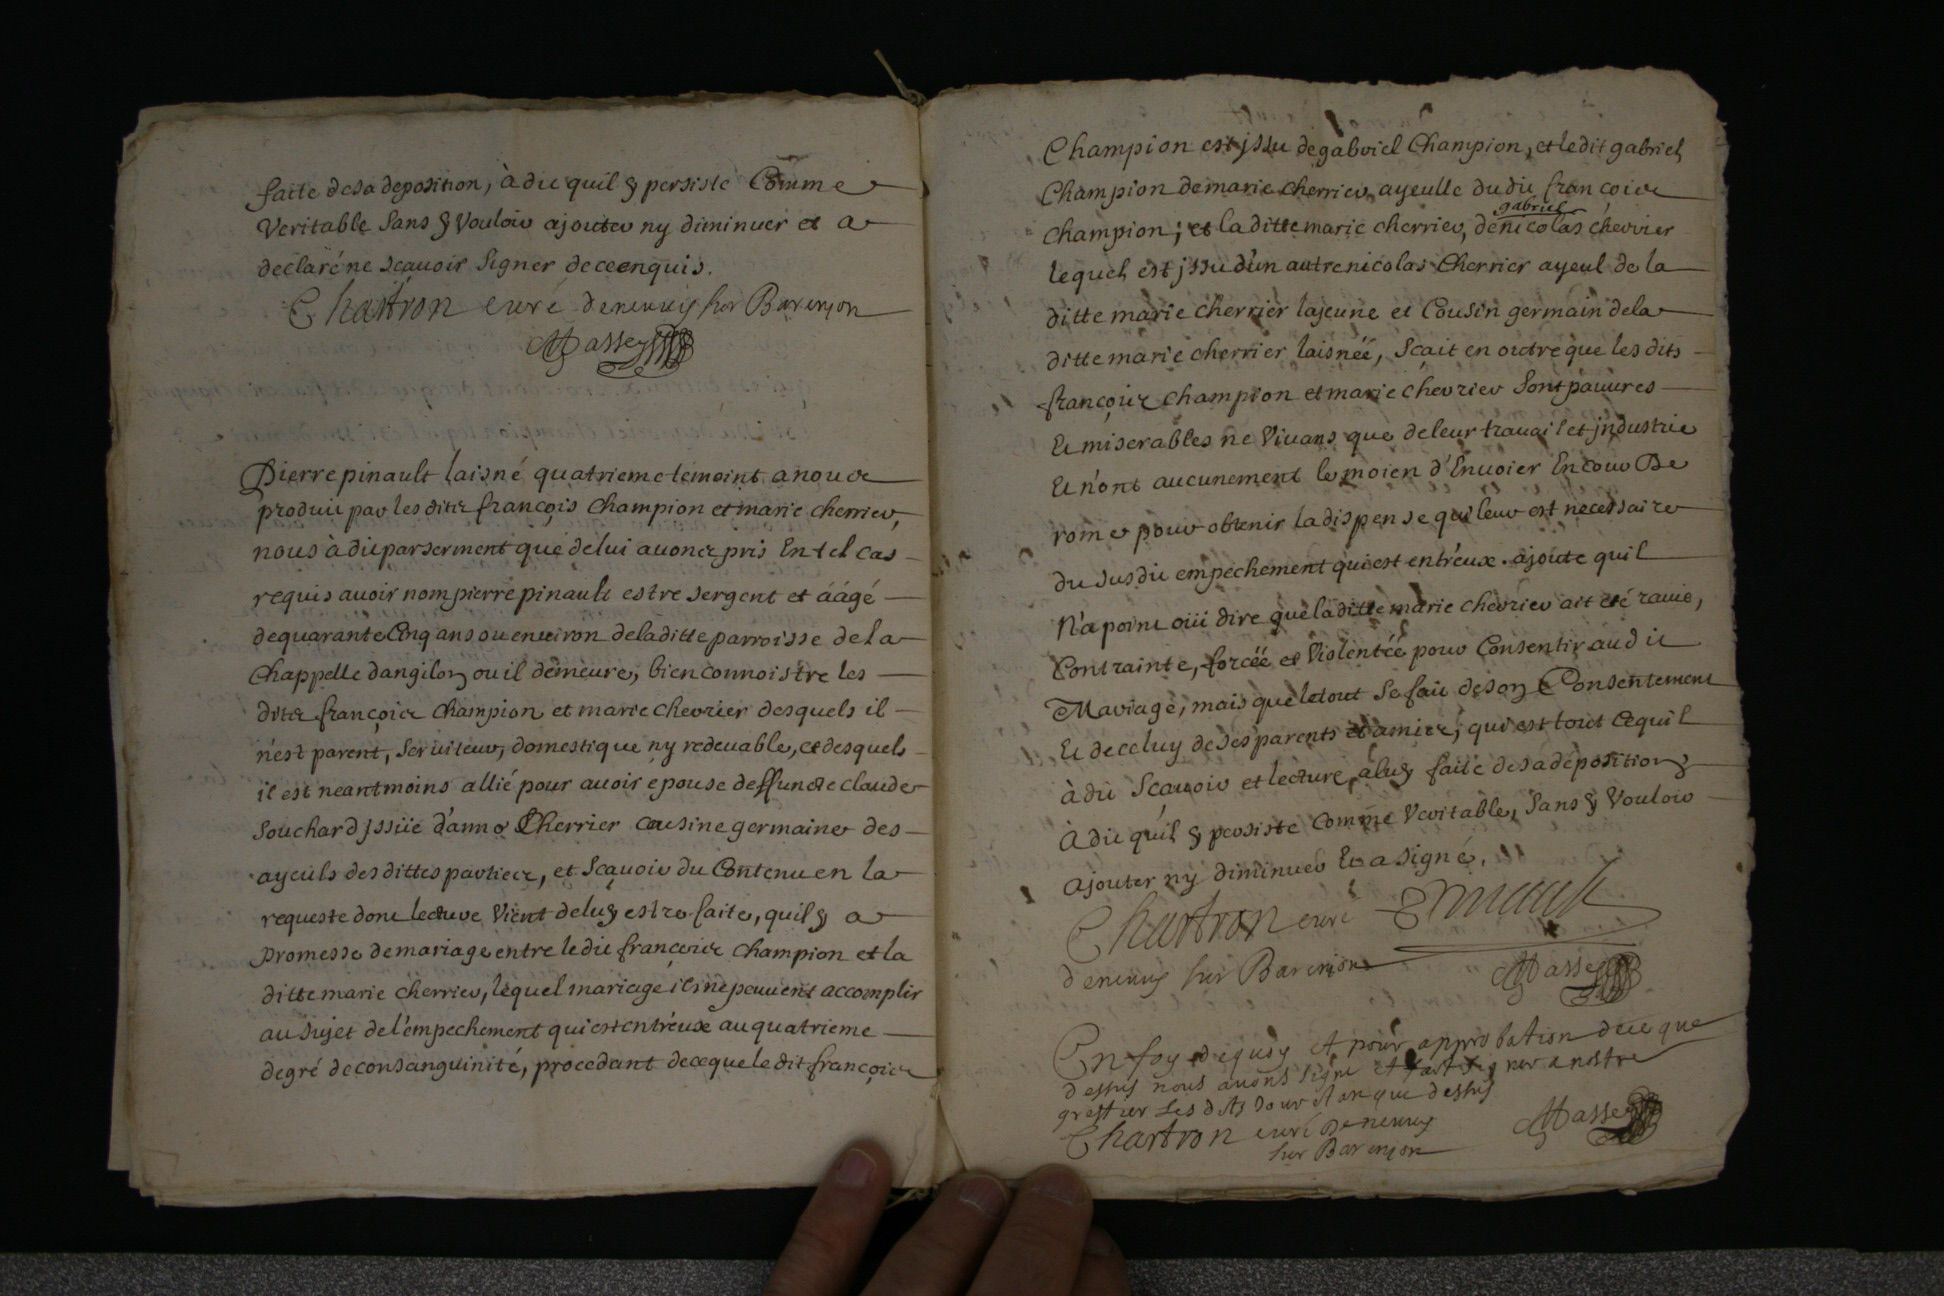 faite de sa deposition, à dit quil y persiste Comme
Veritable sans y Vouloir ajouter ny diminuer et a
declaré ne sçauoir signer de ce enquis.
Chartron curé de neuuy sur Barenjon
Massey
Pierre pinault laisné quatrieme temoint a nous
produit par les dits françois Champion et marie cherrier,
nous à dit par serment que de lui auons pris En tel cas
requis auoir nom pierre pinault estre sergent et áágé
de quarante Cinq ans ou enuiron de la ditte parroisse de la
Chappelle dangilon ou il demeure, bien connoistre les
dits françois Champion et marie cherrier desquels il
n'est parent, seruiteur, domestique ny redeuable, et desquels
il est neantmoins allié pour auoir epousé deffuncte claude
souchard jssüe d'anne Cherrier cousine germaine des
ayeuls des dittes parties, et Sçauoir du Contenu en la
requeste dont lecture Vient de luy estre faite, quil y a
promesse de mariage entre le dit françois Champion et la
ditte marie cherrier, lequel mariage ils ne peuuent accomplir
au sujet de l'empechement qui est entr'eux au quatrieme
degré de consanguinité, procedant de ce que le dit françois
Champion est jssu de gabriel Champion, et le dit gabriel
Champion de marie cherrier ayeulle du dit françois
gabriel
champion; et la ditte marie cherrier, de nicolas cherrier
lequel est jssu d'un autre nicolas Cherrier ayeul de la
ditte marie cherrier lajeune et Cousin germain de la
ditte marie cherrier laisnéé, Sçait en outre que les dits
françois champion et marie cherrier sont pauures
Et miserables ne Viuans que de leur trauail et jndustrie
Et n'ont aucunement le moien d'Enuoier En cour De
rome pour obtenir la dispense qui leur est necessaire
du susdit empechement qui est entr'eux. ajoute quil
N'a point oüi dire que la ditte marie cherrier ait eté rauie,
Contrainte, forcéé et Violentéé pour Consentir au dit
Mariage, mais que le tout se fait de son Consentement
Et de celuy de ses parents et amis; qui est tout ce quil
à dit Sçauoir et lecture a luy faite de sa deposition
A dit quil y persiste Comme Veritable, Sans y Vouloir
Ajouter ny diminuer Et a signé.
Chartron curé Pinault
de neuuy sur Barenjon Massey
En foy de quoy et pour approbation de ce que
dessus nous auons signé et fait signer a nostre
greffier les dits jour et an que dessus
Chartron curé De neuuy Massey
sur Barenjon